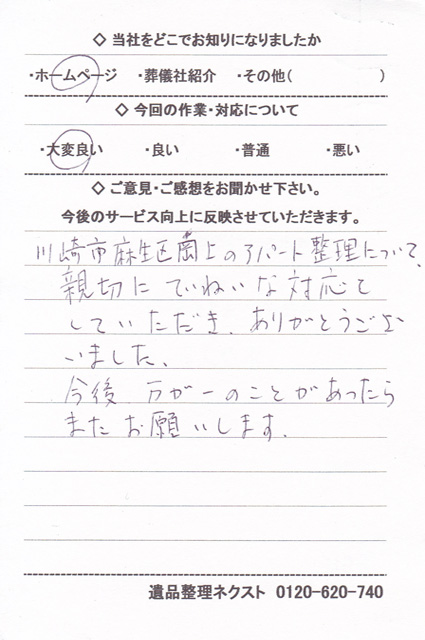 ◇ 当社をどこでお知りになりましたか
・ホームページ ・葬儀社紹介 ・その他( )
◇ 今回の作業・対応について
・大変良い ・良い ・普通 ・悪い
◇ ご意見・ご感想をお聞かせ下さい。
今後のサービス向上に反映させていただきます。
川崎市麻生区 上のアパート整理について、
親切にていねいな対応を
していただき、ありがとうござ
いました、
今後、万が一のことがあったら
またお願いします。
遺品整理ネクスト 0120-620-740